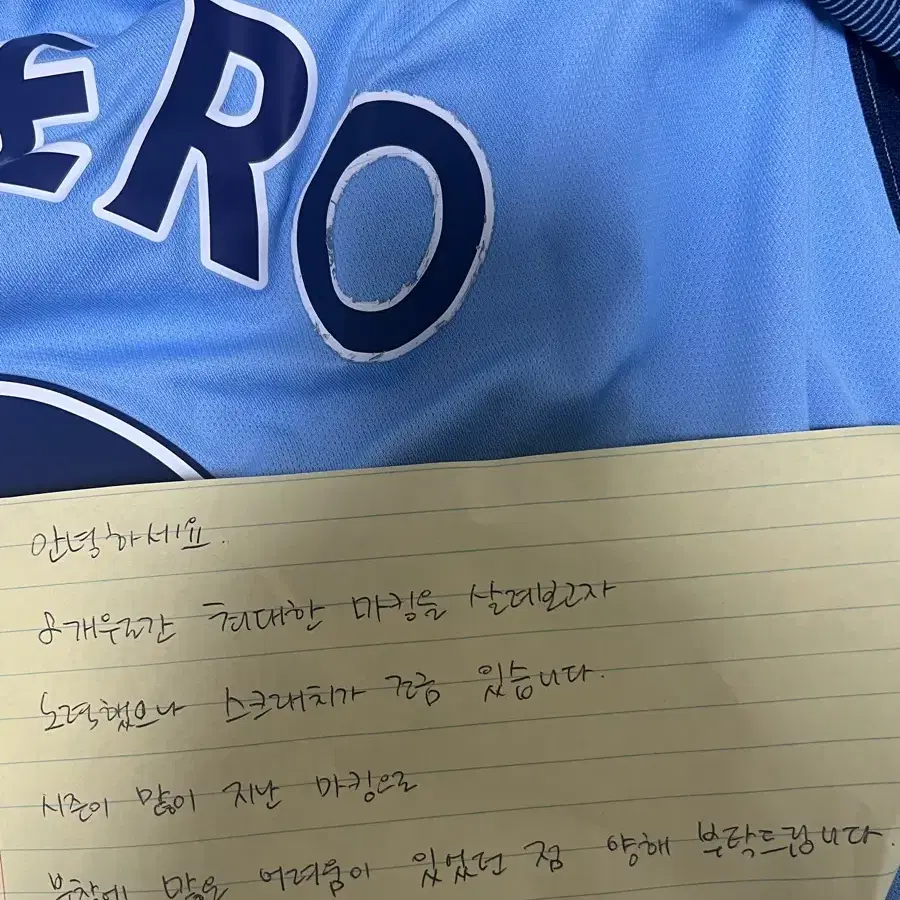 ERO
안녕하세요.
8개월간 최대한 마킹을 살려보고자
노력했으나 스크래치가 조금 있습니다.
시즌이 많이 지난 마킹으로
부착에 많은 어려움이 있었던 점 양해 부탁드립니다.